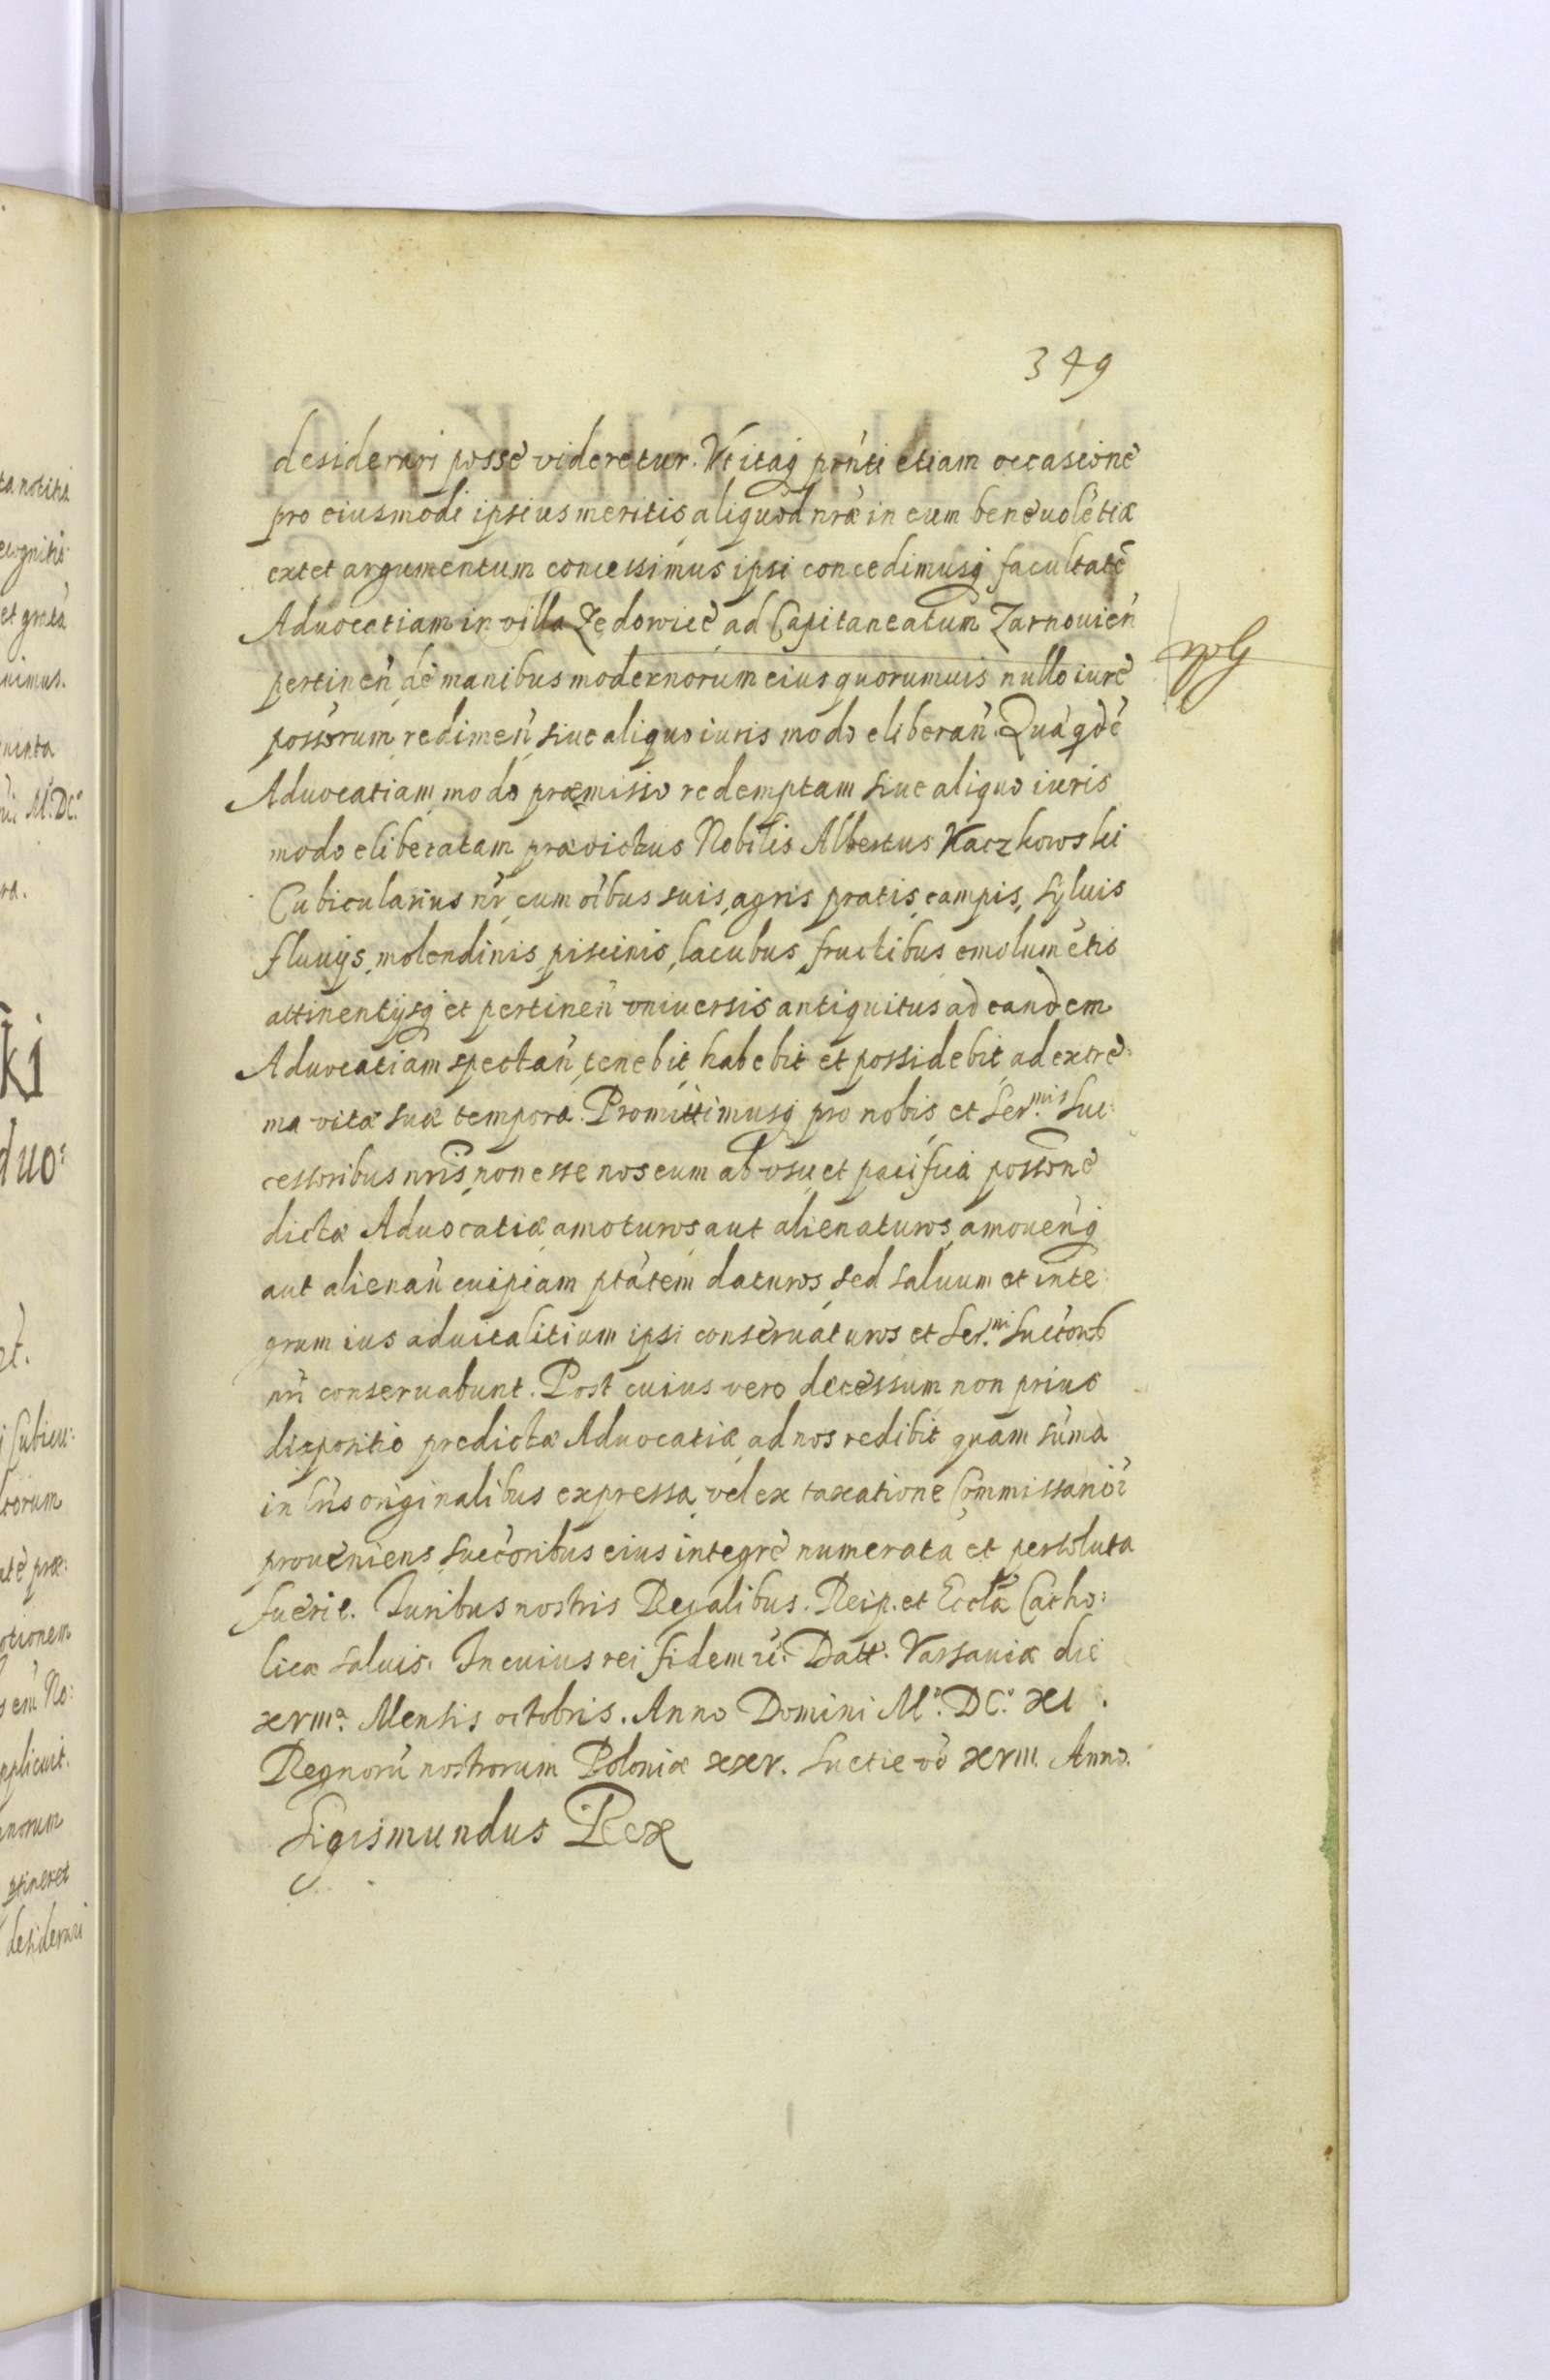 349
desiderari posse videretur. Vt itaq pŕnti etiam occasione
pro eiusmodi ipsius meritis aliquod nræ in eum beneuolētiæ
extet argumentum concessimus ipsi concedimusq facultatē
Aduocatiam in villa Zedowice ad Capitaneatum Zarnouień
pertineń de manibus modernorum eius quorumuis nullo iure
possorum redimeń siue aliquo iuris modo eliberań. Quā qdē
Aduocatiam modo præmisso redemptam siue aliquo iuris
modo eliberatam prævictus Nobilis Albertus Kaczkowski
Cubicularius nr̄ cum oībus suis, agris pratis, campis, syluis
fluuijs, molendinis piscinis, lacubus fructibus emolumētis
attinentijsq et pertineń vniuersis antiquitus ad eandem
Aduocatiam spectań, tenebit habebit et possidebit ad extre:
ma vitæ suæ tempora. Promittimusq pro nobis et Ser.mis Suc:
cessoribus nrīs, non esse nos eum ab vsu et pacifica possōne
dictæ Aduocatiæ amoturos aut alienaturos, amoueńq
aut alienań cuipiam ptātem daturos, sed saluum et inte:
grum ius aduitalitium ipsi conseruaturos et Ser.mi Succorēs
nrī conseruabunt. Post cuius vero decessum non prius
dispositio predictæ Aduocatiæ ad nos redibit quam sūma
in lris originalibus expressa, vel ex taxatione Commissariorꝫ
proueniens succoribus eius integre numerata et persoluta
fuerit. Iuribus nostris Regalibus. Reip. et Ecclæ Catho:
licæ saluis. In cuius rei fidem ꝛc. Datt. Varsauiæ die
xviiia. Mensis octobris. Anno Domini Mo. DCo. XI.
Regnorū nostrorum Poloniæ xxv. Suetie vō xviii. Anno.
Sigismundus Rex